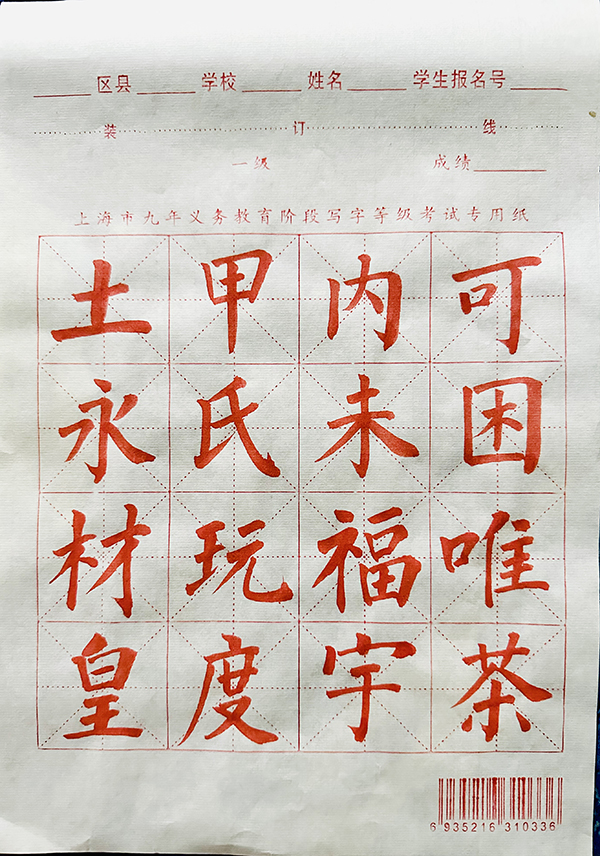 区县 学校 姓名 学生报名号
装 订 线
一级 成绩
上海市九年义务教育阶段写字等级考试专用纸
土 甲 内 可
永 氏 未 困
材 玩 福 唯
皇 度 宇 茶
6 935216 310336